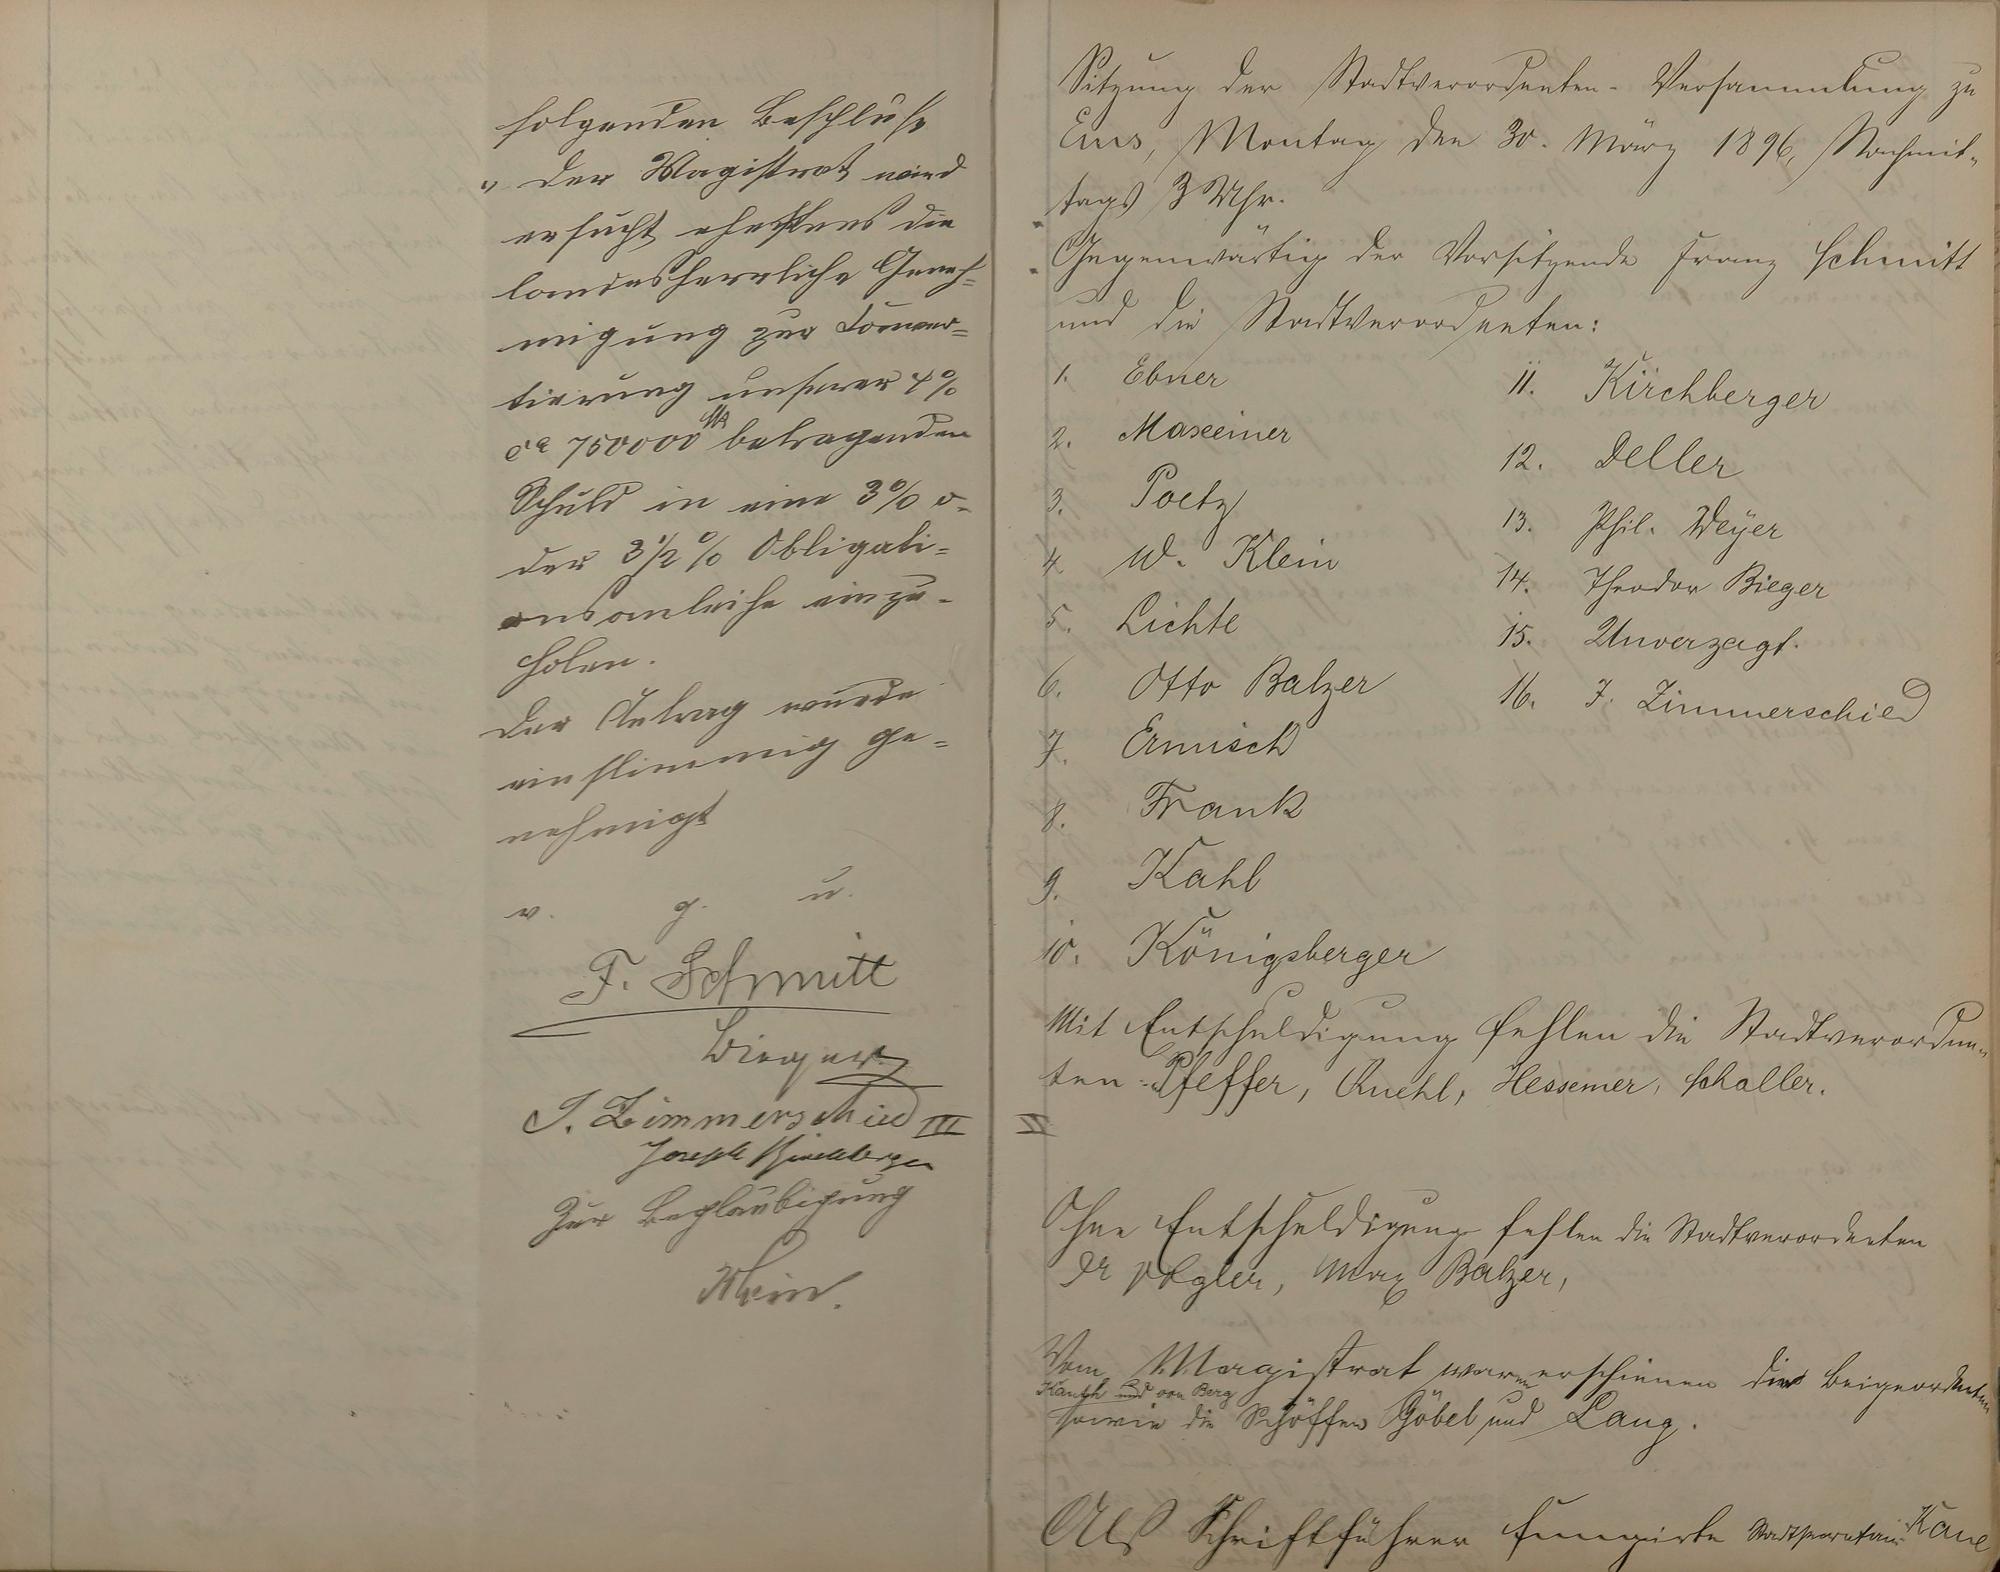 folgenden Beschluß
"Der Magistrat wird
ersucht ehestens die
landesherrliche Geneh=
migung zur Conver=
tierung unserer 4%
ca 750000 M betragenden
Schuld in eine 3% o-
der 3 1/2 % Obligati=
onsanleihe einzu-
holen.
Der Antrag wurde
einstimmig ge=
nehmigt
v. g. u.
F. Schmitt
Bieger
J. Zimmerschied III
Joseph Kirchberger
Zur Beglaubigung
Klein.
Sitzung der Stadtverordneten-Versammlung zu
Ems, Montag den 30. März 1896, Nachmit-
tags 3 Uhr.
Gegenwärtig der Vorsitzende Franz Schmitt
und die Stadtverordneten:
1. Ebner
2. Maxeiner
3. Poetz
4. W. Klein
5. Lichte
6. Otto Balzer
7. Ermisch
8. Frank
9. Kahl
10. Königsberger
11. Kirchberger
12. Deller
13. Phil. Weyer
14. Theodor Bieger
15. Unverzagt.
16. J. Zimmerschied
Mit Entschuldigung fehlen die Stadtverordne-
ten: Pfeffer, Ruehl, Hessemer, Schaller.
Ohne Entschuldigung fehlen die Stadtverordneten
Dr Vogler, Max Balzer,
Vom Magistrat waren erschienen die Beigeordneten
und von Berg
sowie die Schöffen Göbel und Lang.
Als Schriftführer fungirte Stadtsecretair Kaul